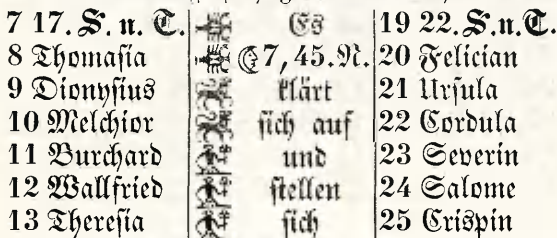 7 17. S. n. T. Es 19 22. S. n. T.
8 Thomasia 7, 45. N. 20 Felician
9 Dionysius klärt 21 Ursula
10 Melchior sich auf 22 Cordula
11 Burchard und 23 Severin
12 Wallfried stellen 24 Salome
13 Theresia sich 25 Crispin